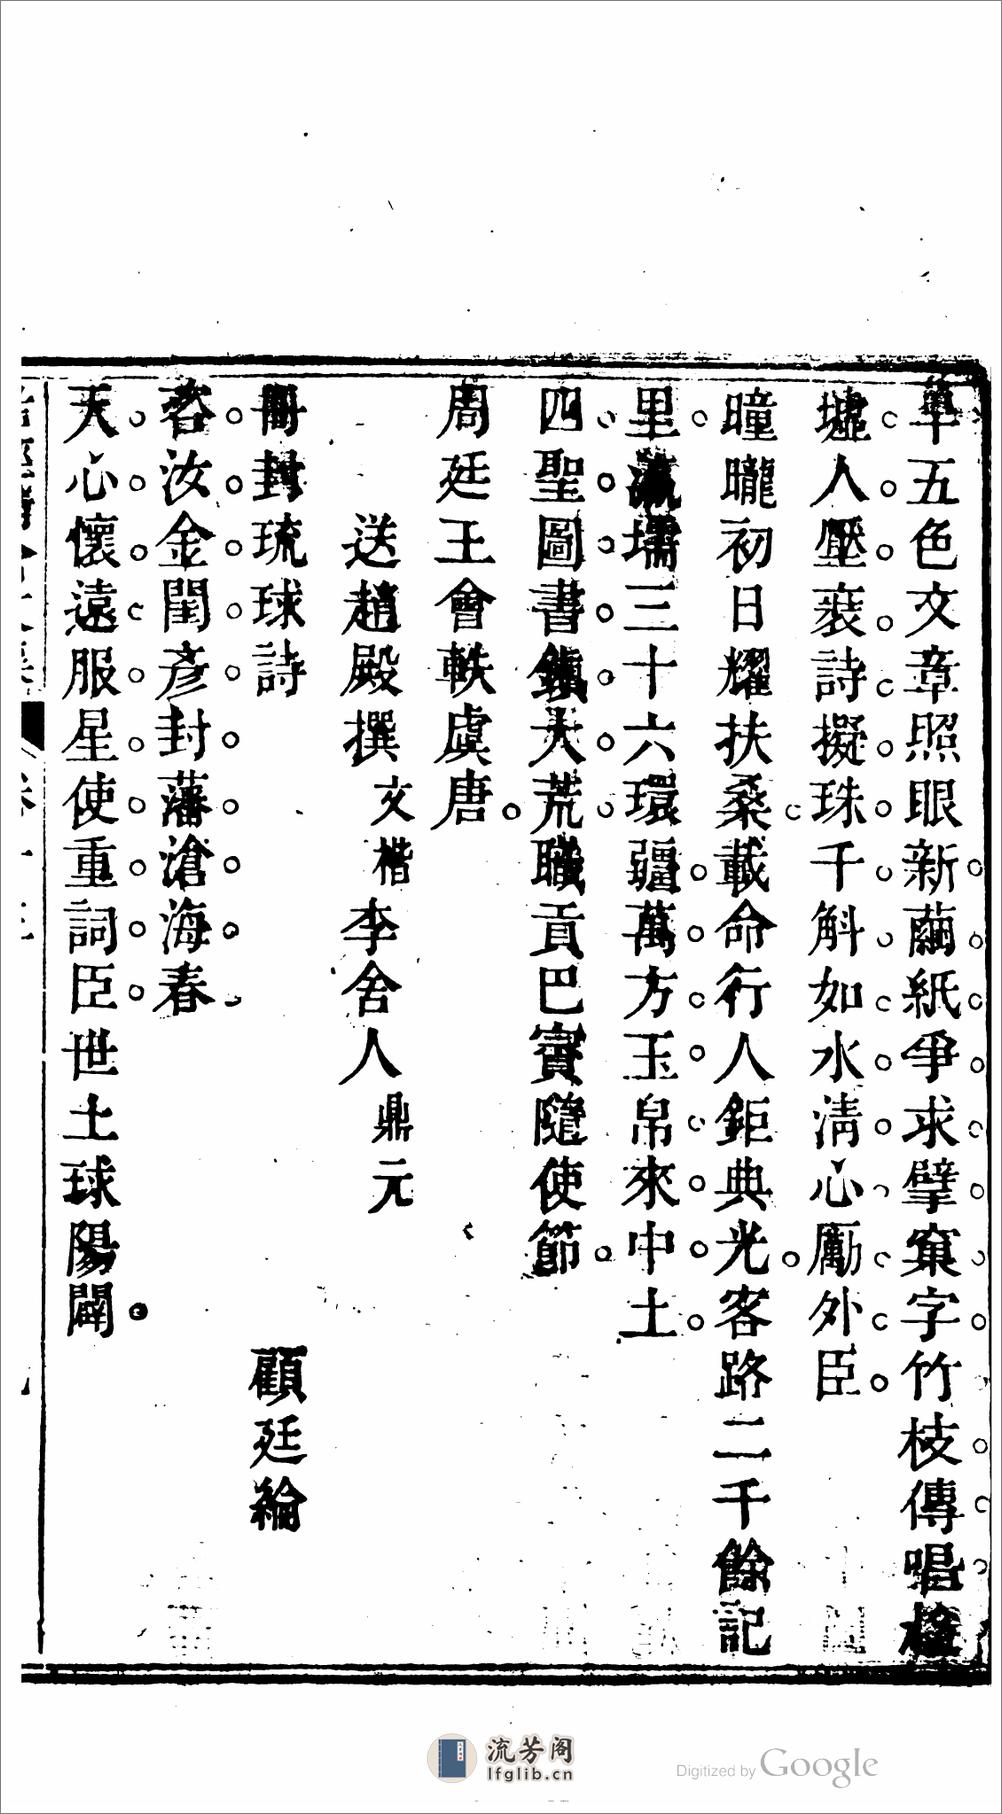 五色文章照眼新繭紙爭求擘窠字竹枝傳唱
墟人壓裘詩擬珠千斛如水清心勵外臣
曈曨初日耀扶桑載命行人鉅典光客路二千餘記
里瀛壖三十六環疆萬方玉帛來中土
四聖圖書鎮大荒職貢巴賓隨使節
周廷王會軼虞唐
送趙殿撰文楷李舍人鼎元
冊封琉球詩 顧廷綸
咨汝金閨彥封藩滄海春
天心懷遠服星使重詞臣世土球陽闢
流芳阁
lfglib.cn
Digitized by Google